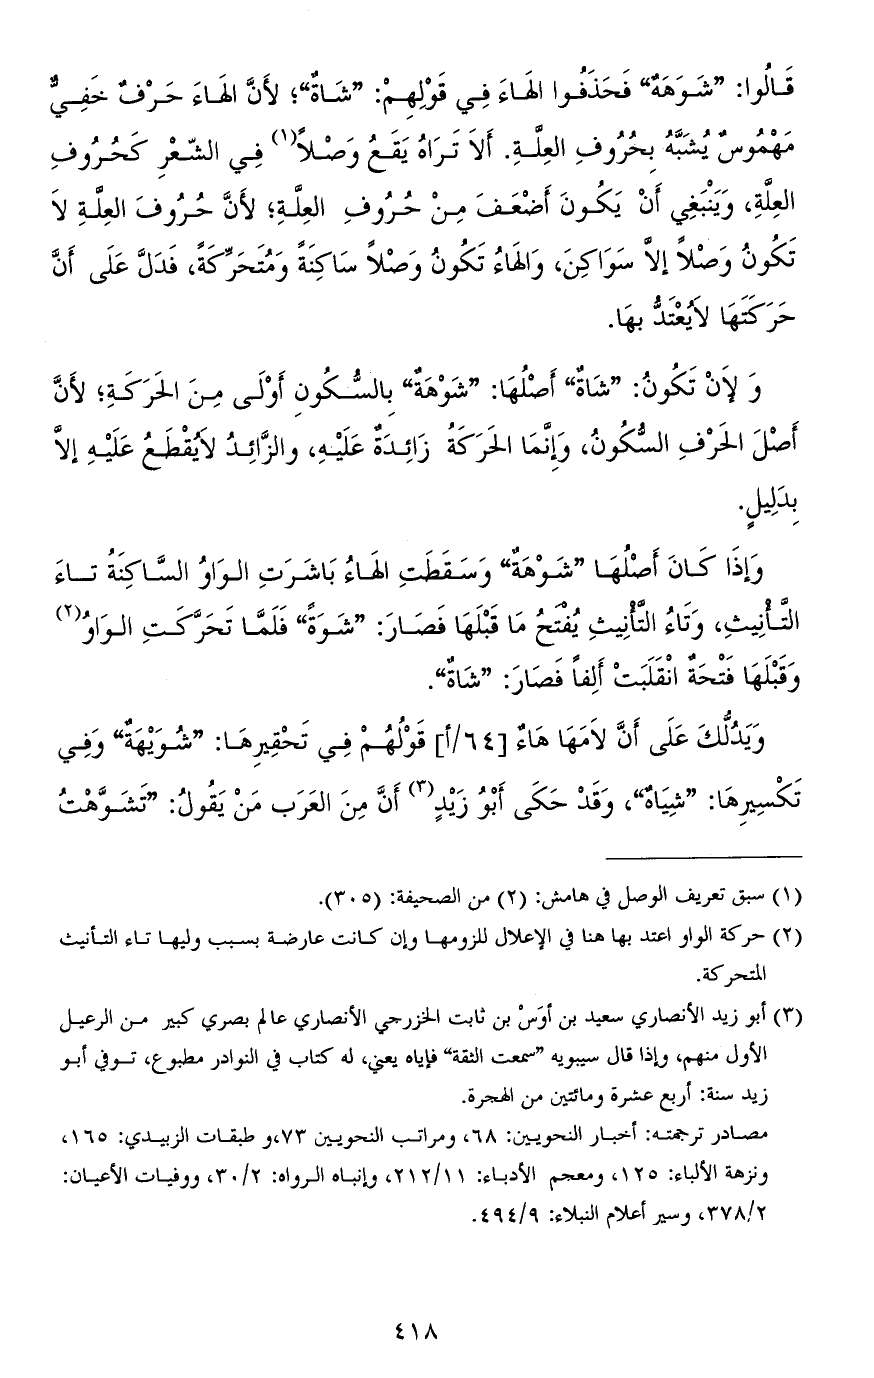 قَالُوا: ”شَوَهَةٌ“ فَحَذَفُوا الهَاءَ فِي قَوْلِهِمْ: ”شَاةٌ“؛ لأَنَّ الهَاءَ حَرْفٌ خَفِيٌّ
مَهْمُوسٌ يُشَبَّهُ بِحُرُوفِ العِلَّةِ. أَلاَ تَرَاهُ يَقَعُ وَصْلاً(١) فِي الشّعْرِ كَحُرُوفِ
العِلَّةِ، وَيَنْبَغِي أَنْ يَكُونَ أَضْعَفَ مِنْ حُرُوفِ العِلَّةِ؛ لأَنَّ حُرُوفَ العِلَّةِ لاَ
تَكُونُ وَصْلاً إلاَّ سَوَاكِنَ، وَالهَاءُ تَكُونُ وَصْلاً سَاكِنَةً وَمُتَحَرِّكَةً، فَدَلَّ عَلَى أَنَّ
حَرَكَتَهَا لاَيُعْتَدُّ بهَا.
وَ لِأَنْ تَكُونُ: ”شَاةٌ“ أَصْلُهَا: ”شَوْهَةٌ“ بالسُّكُونِ أَوْلَى مِنَ الحَرَكَةِ؛ لأَنَّ
أَصْلَ الحَرْفِ السُّكُونُ، وَإِنَّمَا الحَرَكَةُ زَائِدَةٌ عَلَيْهِ، والزَّائِدُ لاَيُقْطَعُ عَلَيْهِ إلاَّ
بِدَلِيلٍ.
وَإِذَا كَانَ أَصْلُهَا ”شَوْهَةٌ“ وَسَقَطَتِ الهَاءُ بَاشَرَتِ الوَاوُ السَّاكِنَةُ تاءَ
التَّأْنِيثِ، وَتَاءُ التَّأْنِيثِ يُفْتَحُ مَا قَبْلَهَا فَصَارَ: ”شَوَةً“ فَلَمَّا تَحَرَّكَتِ الوَاوُ(٢)
وَقَبْلَهَا فَتْحَةٌ انْقَلَبَتْ أَلِفاً فَصَارَ: ”شَاةٌ“.
وَيَدُلُّكَ عَلَى أَنَّ لاَمَهَا هَاءٌ [٦٤/أ] قَوْلُهُمْ فِي تَحْقِيرِهَا: ”شُوَيْهَةٌ“ وَفِي
تَكْسِيرِهَا: ”شِيَاهٌ“، وَقَدْ حَكَى أَبُو زَيْدٍ(٣) أَنَّ مِنَ العَرَب مَنْ يَقُولُ: ”تَشَوَّهْتُ
(١) سبق تعريف الوصل في هامش: (٢) من الصحيفة: (٣٠٥).
(٢) حركة الواو اعتد بها هنا في الإعلال للزومها وإن كانت عارضة بسبب وليها تاء التأنيث
المتحركة.
(٣) أبو زيد الأنصاري سعيد بن أَوَسْ بن ثابت الخزرجي الأنصاري عالم بصري كبير من الرعيل
الأول منهم، وإذا قال سيبويه ”سمعت الثقة“ فإياه يعني، له كتاب في النوادر مطبوع، توفي أبو
زيد سنة: أربع عشرة ومائتين من الهجرة.
مصادر ترجمته: أخبار النحويين: ٦٨، ومراتب النحويين ٧٣،و طبقات الزبيدي: ١٦٥،
ونزهة الألباء: ١٢٥، ومعجم الأدباء: ٢١٢/١١، وإنباه الرواه: ٣٠/٢، ووفيات الأعيان:
٣٧٨/٢، وسير أعلام النبلاء: ٤٩٤/٩.
٤١٨